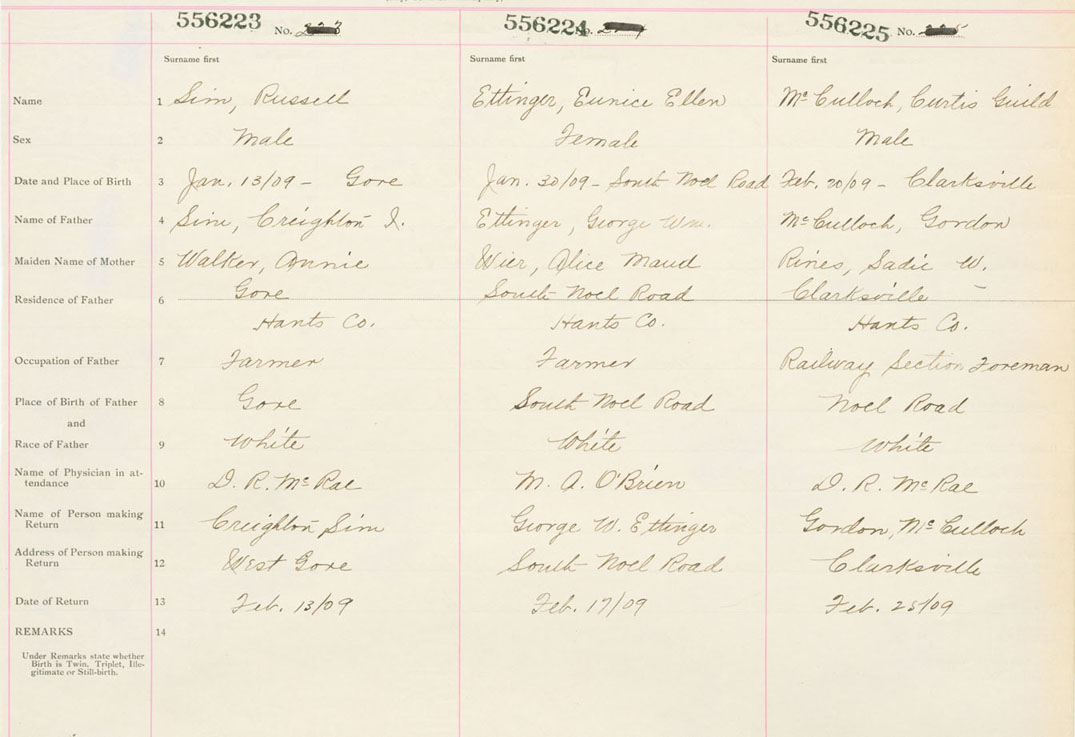 556223 No. 223 556224 No. 556225 No.
Surname first Surname first Surname first
Name 1 Sim, Russell Ettinger, Eunice Ellen McCulloch, Curtis Guild
Sex 2 Male Female Male
Date and Place of Birth 3 Jan. 13/09 - Gore Jan. 30/09 - South Noel Road Feb. 20/09 - Clarksville
Name of Father 4 Sim, Creighton I. Ettinger, George Wm. McCulloch, Gordon
Maiden Name of Mother 5 Walker, Annie Wier, Alice Maud Rines, Sadie W.
Residence of Father 6 Gore South Noel Road Clarksville
Hants Co. Hants Co. Hants Co.
Occupation of Father 7 Farmer Farmer Railway Section Foreman
Place of Birth of Father 8 Gore South Noel Road Noel Road
and
Race of Father 9 White White White
Name of Physician in at-
tendance 10 D. R. McRae M. A. O'Brien D. R. McRae
Name of Person making
Return 11 Creighton Sim George W. Ettinger Gordon, McCulloch
Address of Person making
Return 12 West Gore South Noel Road Clarksville
Date of Return 13 Feb. 13/09 Feb. 17/09 Feb. 25/09
REMARKS 14
Under Remarks state whether
Birth is Twin, Triplet, Ille-
gitimate or Still-birth.